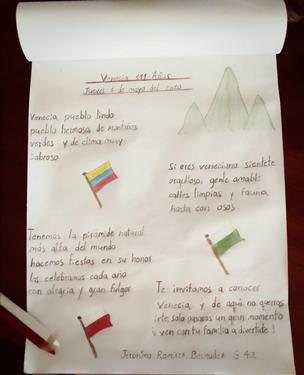 Venecia 111 Años
Jueves 7 de mayo del 2020
Venecia, pueblo lindo
pueblo hermoso de montañas
verdes y de clima muy
sabroso.
Si eres veneciano sientete
orgulloso, gente amable
calles limpias y fauna
hasta con osos.
Tenemos la piramide natural
más alta del mundo
hacemos fiestas en su honor
las celebramos cada año
con alegria y gran fulgor
Te invitamos a conocer
Venecia, y de aquí no querras
irte, solo pasaras un gran momento
¡ven con tu familia a divertirte!
Jeronimo Ramirez Bermudez G 4.2